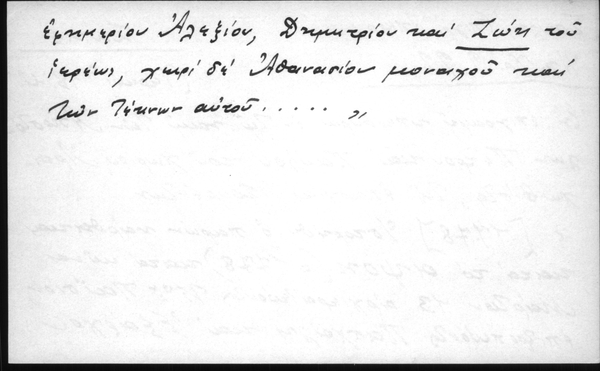 ἐφημερίου Ἀλεξίου, Δημητρίου καί Ζώη τοῦ
ἱερέως, χειρί δέ Ἀθανασίου μοναχοῦ καί
τῶν τέκνων αὐτοῦ ..... „